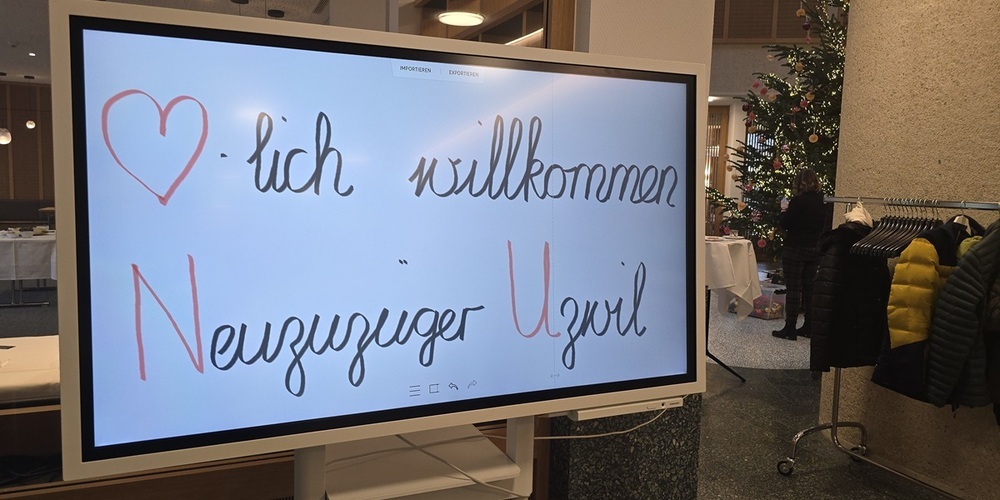 IMPORTIEREN EXPORTIEREN
♡-lich willkommen
Neuzuzüger Uzwil